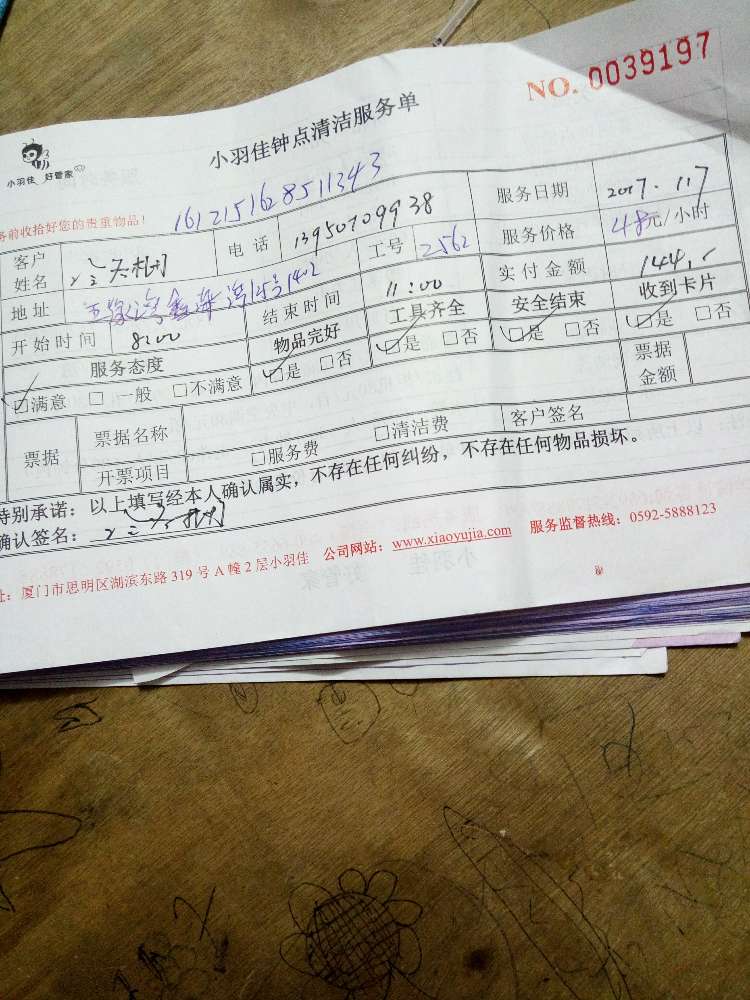 NO. 0039197
小羽佳 好管家
小羽佳钟点清洁服务单
务前收拾好您的贵重物品！
1612151628511343
客户姓名
电话 13950709938
服务日期 2017.1.17
地址
15号1402
工号 2562
服务价格 48元/小时
开始时间 8:00
结束时间 11:00
实付金额 144.-
服务态度 物品完好 工具齐全 安全结束 收到卡片
☑满意 □一般 □不满意 ☑是 □否 ☑是 □否 ☑是 □否 ☑是 □否
票据 票据名称 票据金额
开票项目 □服务费 □清洁费 客户签名
特别承诺：以上填写经本人确认属实，不存在任何纠纷，不存在任何物品损坏。
确认签名：
址：厦门市思明区湖滨东路319号A幢2层小羽佳 公司网站：www.xiaoyujia.com 服务监督热线：0592-5888123